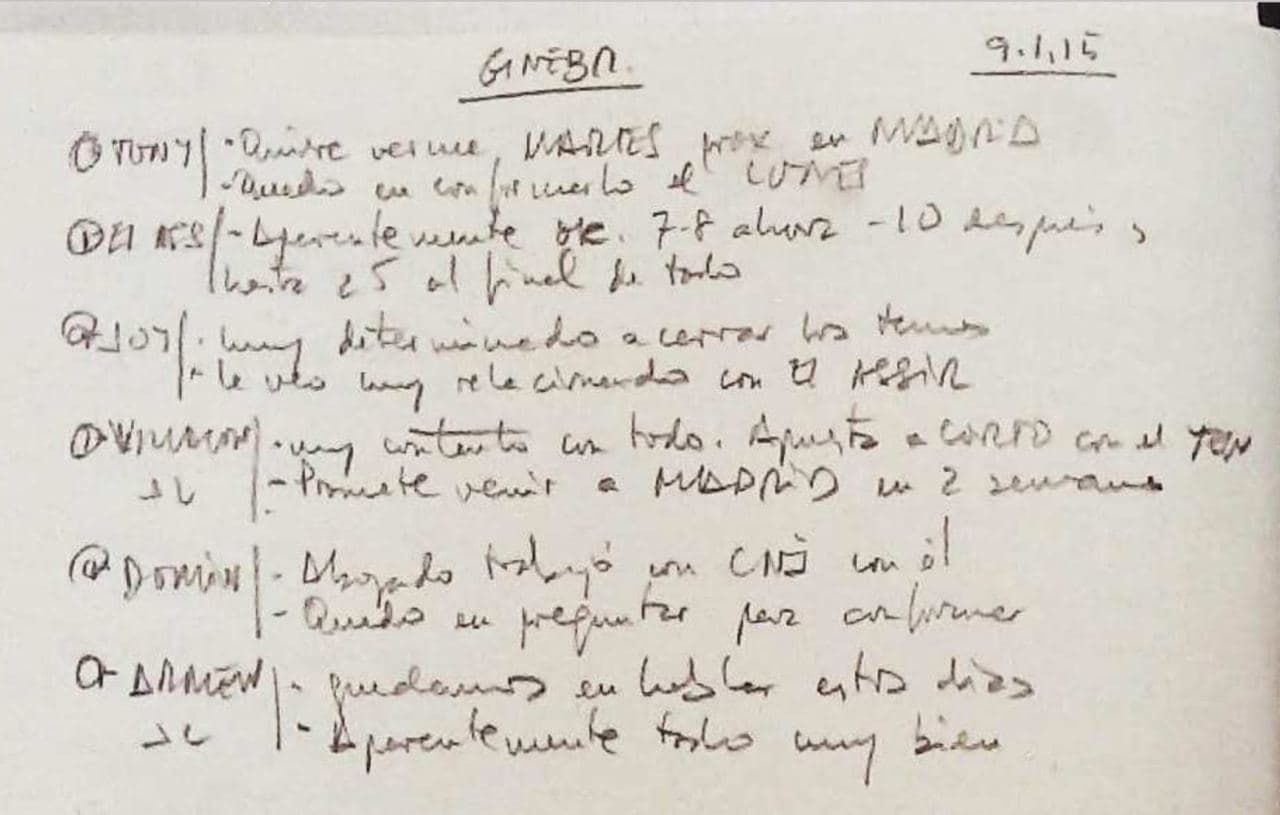 GINEBR.
9.1.15
TONY - Quiere verme, MARTES prox en MADRID
- Quedo en confirmarlo el LUNES
El ASS - Aparentemente ok. 7-8 ahora -10 después y
hasta 25 al final de todo
JOY - muy determinado a cerrar los temas
- le veo muy relacionado con El ASSIR
- muy contento con todo. Apuesta a CORTO con el TON
- Promete venir a MADRID en 2 semanas
- Abogado trabajó con CNI con él
- Quedo en preguntar para confirmar
- quedamos en hablar estos días
- Aparentemente todo muy bien